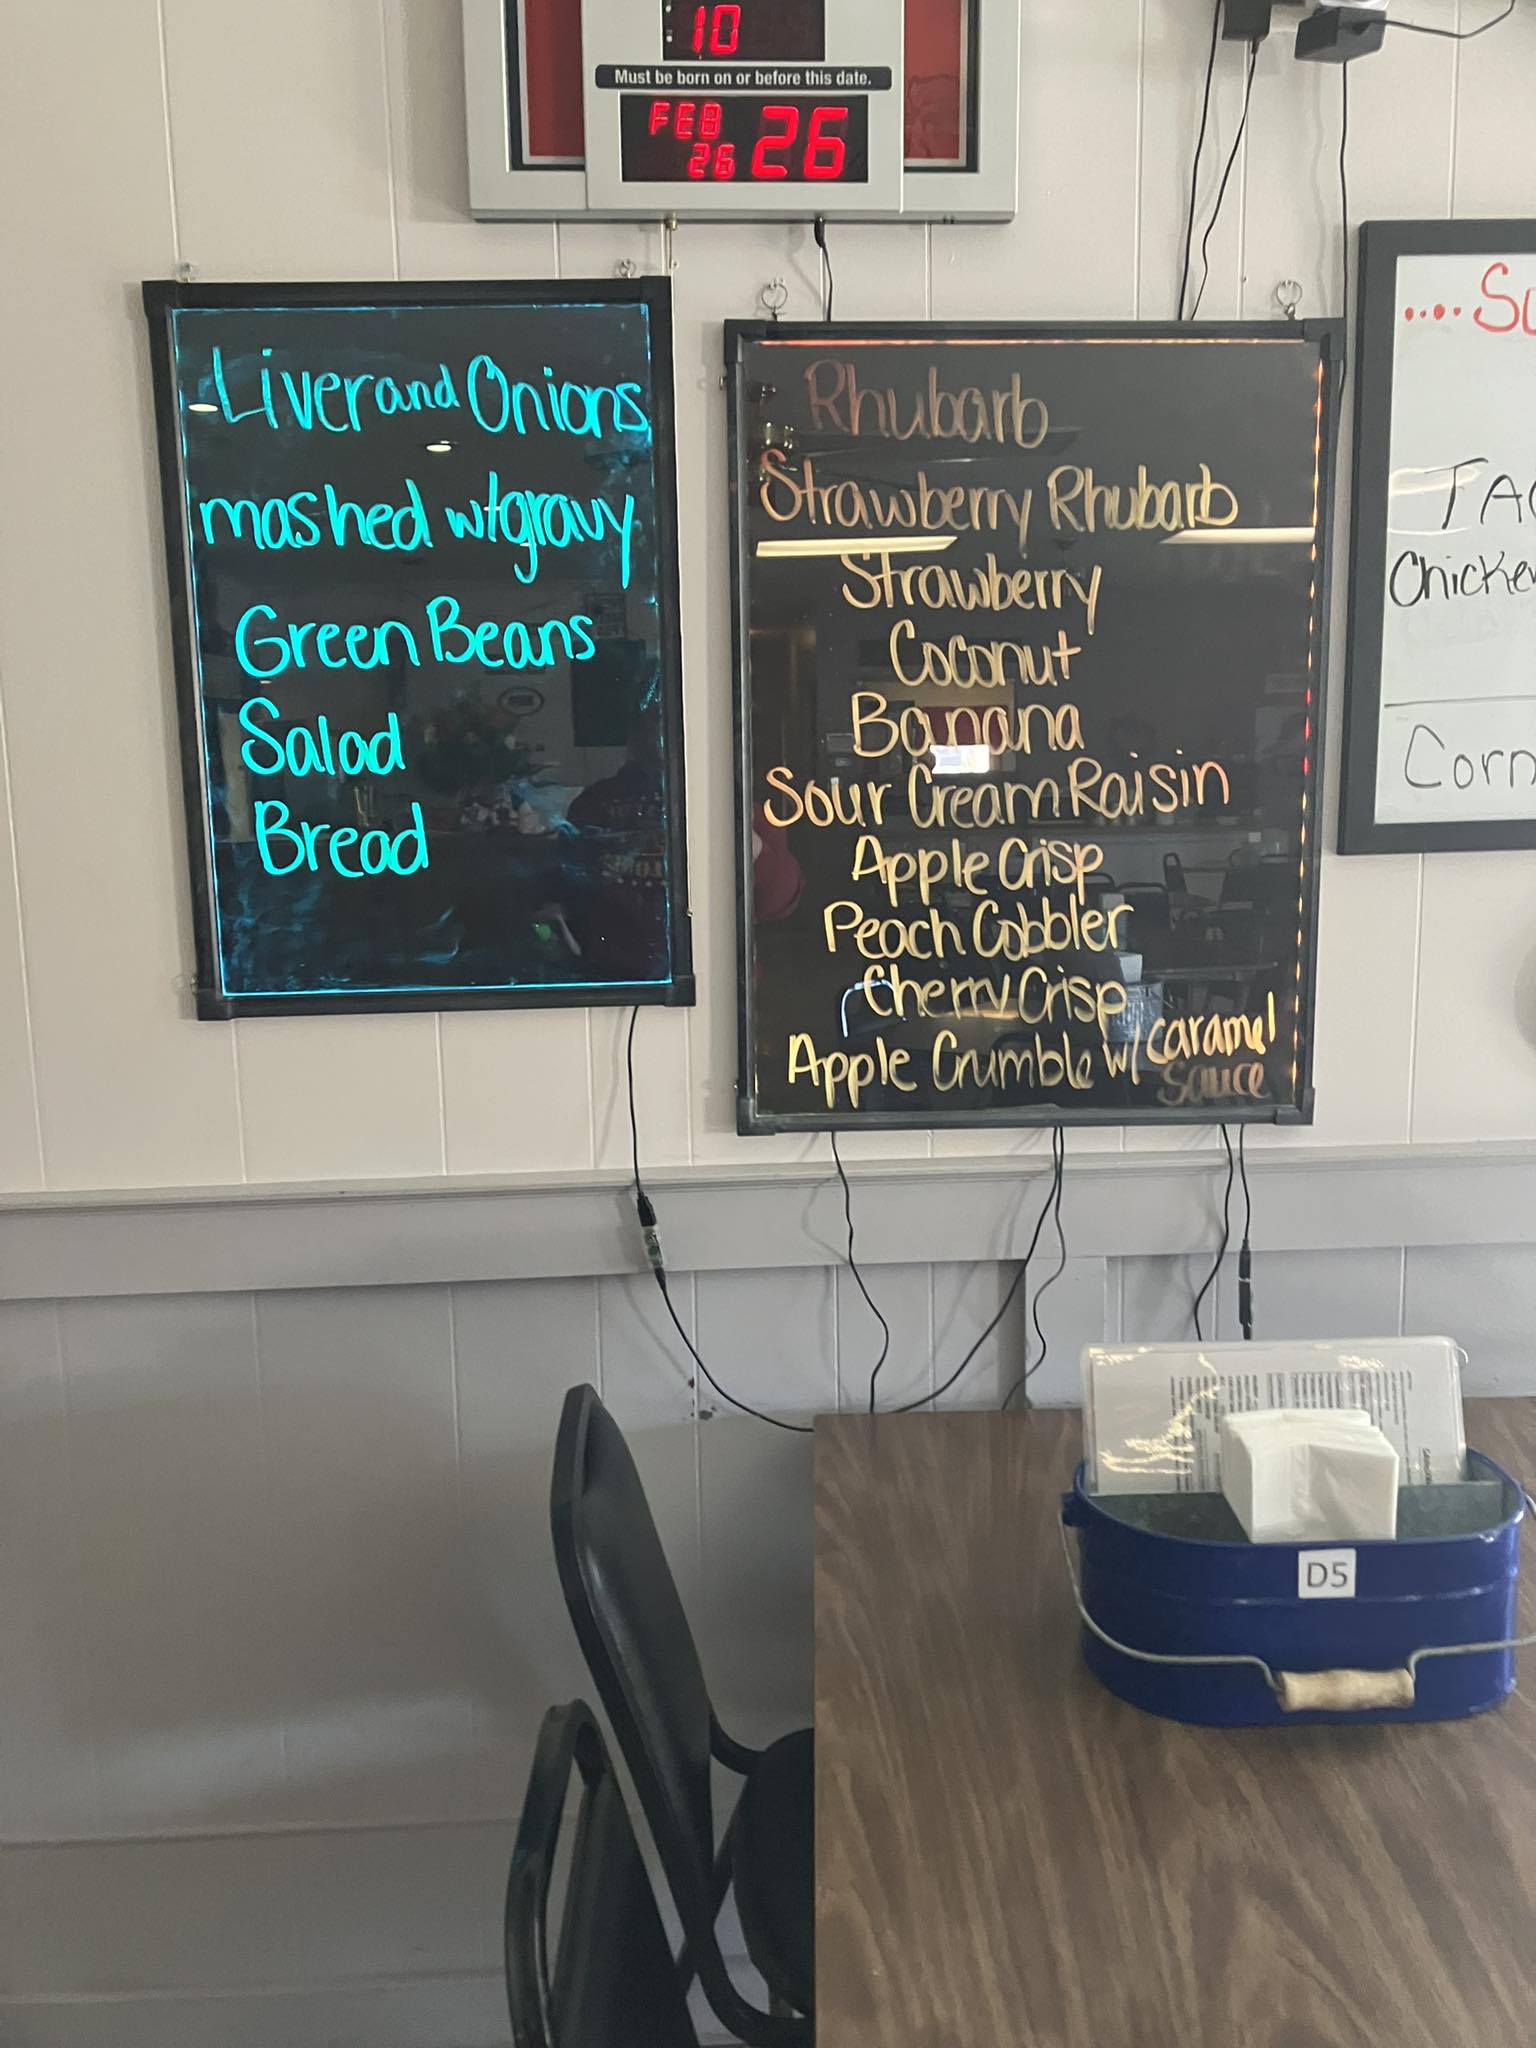 10
Must be born on or before this date.
FEB
26
26
Liver and Onions
mashed w/gravy
Green Beans
Salad
Bread
Rhubarb
Strawberry Rhubarb
Strawberry
Coconut
Banana
Sour Cream Raisin
Apple Crisp
Peach Cobbler
Cherry Crisp
Apple Crumble w/ caramel
sauce
Corn
D5